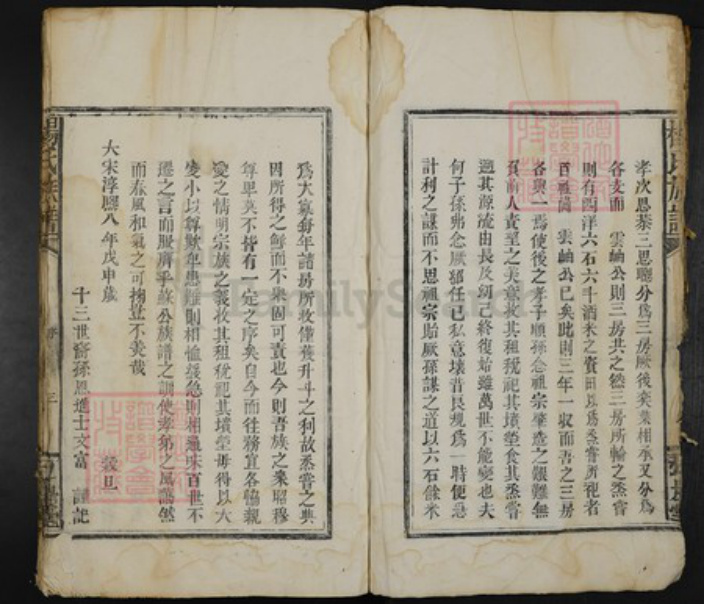 孝次恩恭三思聰分爲三房厥後奕葉相承又分爲
各支而 雲岫公則三房共之然三房所輪之烝嘗
則有四洋六石六斗酒米之資田以爲烝嘗所祀者
百 雲岫公已矣此則三年一収而吾之三房
各與一焉使後之孝子順孫念祖宗肇造之艱難無
負前人責望之美意收其租稅祀其墳塋食其烝嘗
遡其源流由長及幼己終復始雖萬世不能變也夫
何子孫弗念厥紹任已私意壞昔良規爲一時便急
計利之謀而不思祖宗貽厥孫謀之道以六石餘米
爲大蒸每年諸房所收僅獲升斗之利故烝嘗之典
因所得之鮮而不衆固可責也今則吾族之衆昭穆
尊卑莫不皆有一定之序矣自今而往務宜各協親
愛之情明宗族之義收其租稅祀其墳塋毋得以大
變小以尊欺卑患難則相恤緩急則相通味百世不
遷之言而服膺乎蘇公族譜之訓使孝弟之風藹然
而春風和氣之可掬豈不美哉
大宋淳熙八年戊申歲
十三世裔孫恩進士文富 謹記
穀旦
楊氏族譜
序
三
FamilySearch